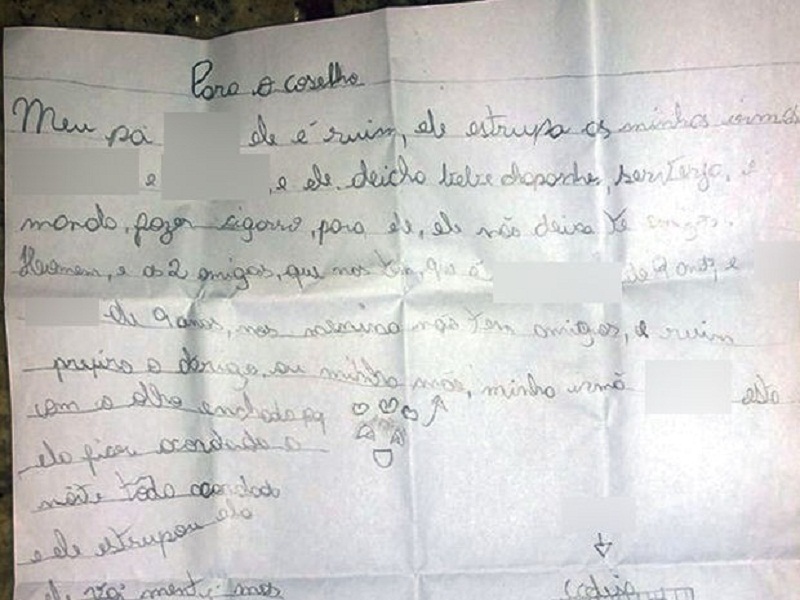 Para o coselho
Meu pá ele é ruim, ele estrupa as minhas irmãs
e , e ele deicho bebe chapanhe, serveja, e
manda, fazer sigarro, para ele, ele não deixa te amigos.
Homem, e as 2 amigas, que nos tem, que é de anos, e
de 9 anos, nos menina não tem amigos, é ruim
prefiro o abrigo, ou minha mãe, minha irmã esta
com o olho enchado pq
ela ficou acordada a
noite toda acordada
e ele estrupou ela
ele vai menti mas
cadeia